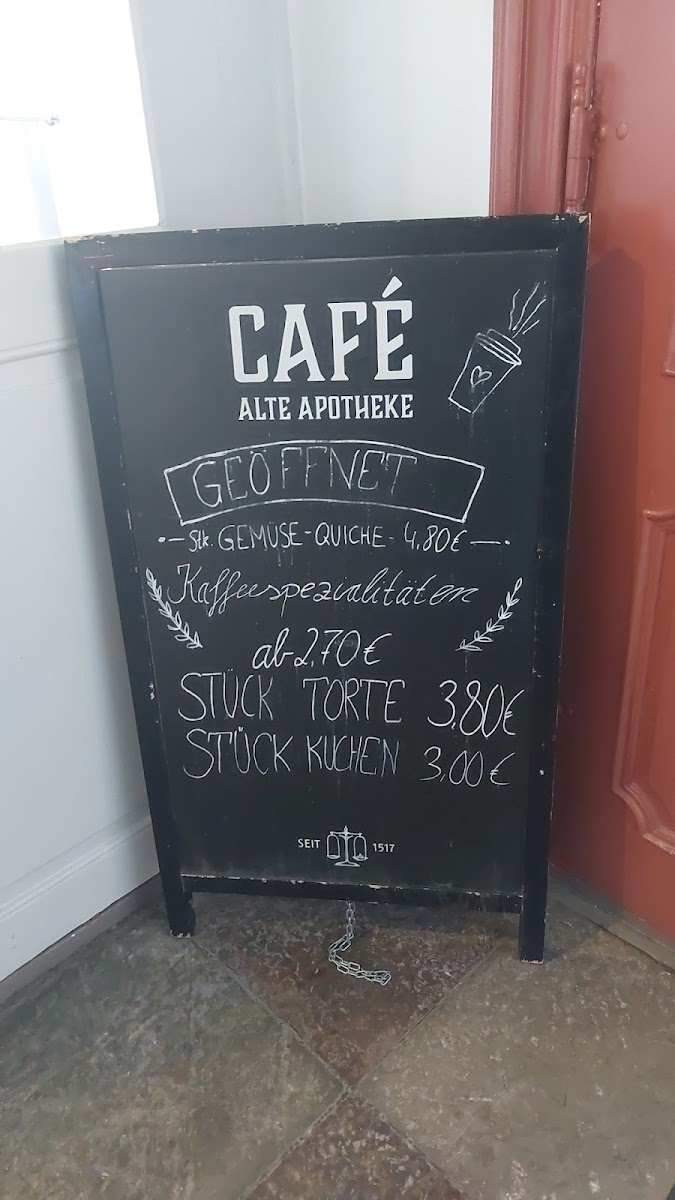 CAFÉ
ALTE APOTHEKE
GEÖFFNET
Stk. GEMÜSE-QUICHE - 4,80€
Kaffeespezialitäten
ab 2,70€
STÜCK TORTE 3,80€
STÜCK KUCHEN 3,00€
SEIT 1517